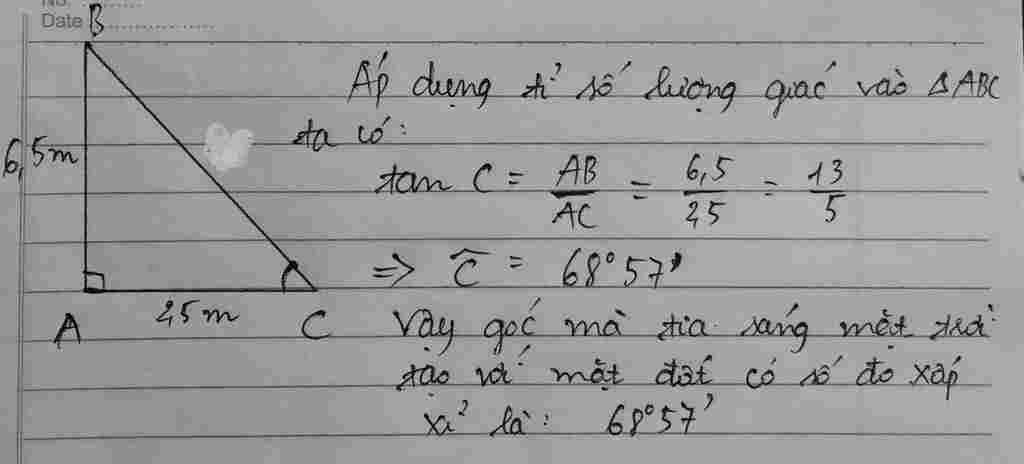 No. ..........
Date ....................
B
Áp dụng tỉ số lượng giác vào ΔABC
ta có:
6,5m
tan C = AB/AC = 6,5/2,5 = 13/5
=> Ĉ = 68°57'
A 2,5m C
Vậy góc mà tia sáng mặt trời
tạo với mặt đất có số đo xấp
xỉ là: 68°57'